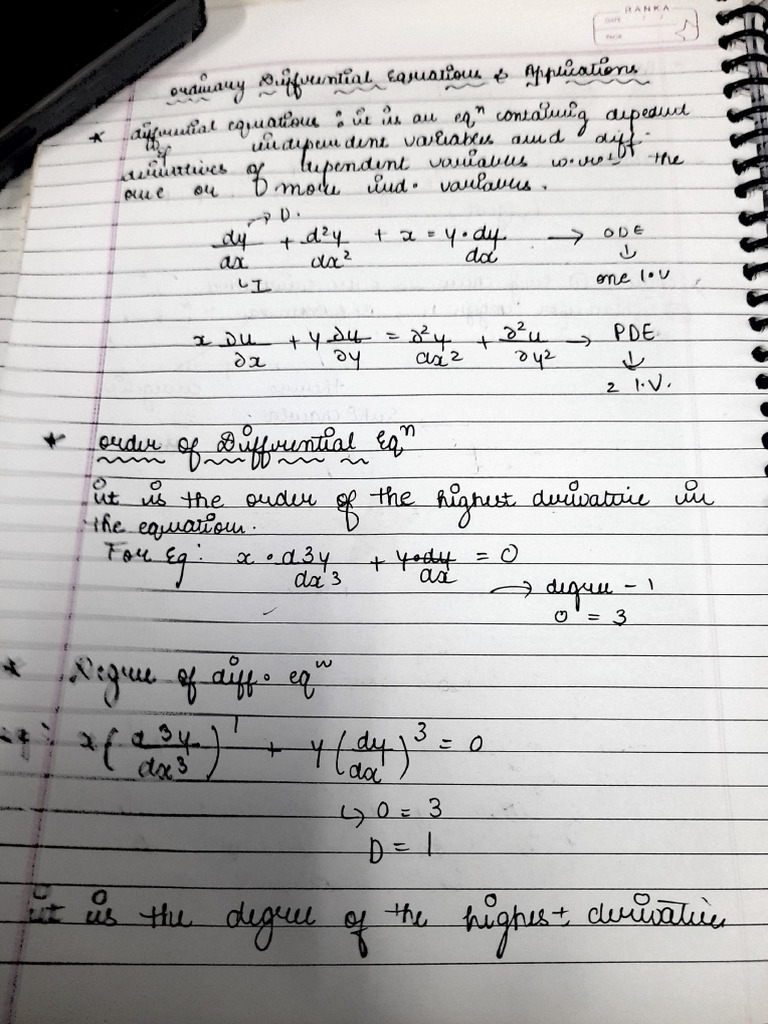 RANKA
DATE / /
PAGE
ordinary Differential Equations & Applications
* differential equations : it is an eqⁿ containing depedent
& independent variables and diff.
derivatives of dependent variables w.r.t the
one or more ind. variables.
→ D.
dy/dx + d²y/dx² + x = y.dy/dx → ODE
↳ I
↓
one I.V
x ∂u/∂x + y ∂u/∂y = ∂²y/dx² + ∂²u/∂y² → PDE
↓
2 I.V.
* order of Differential Eqⁿ
it is the order of the highest derivative in
the equation.
For Eg: x . d3y/dx3 + y.dy/dx = 0
→ degree - 1
0 = 3
* Degree of diff. eqⁿ
eg: x(d3y/dx3)¹ + y(dy/dx)³ = 0
↳ 0 = 3
D = 1
it is the degree of the highest derivative